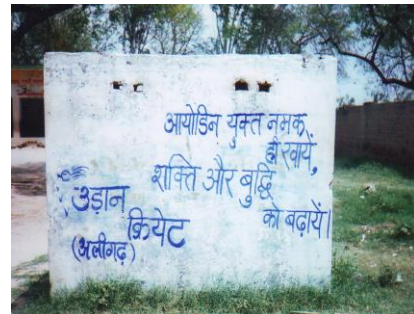 आयोडिन युक्त नमक
ही खायें,
शक्ति और बुद्धि
को बढ़ायें।
उड़ान
क्रियेट
(अलीगढ़)